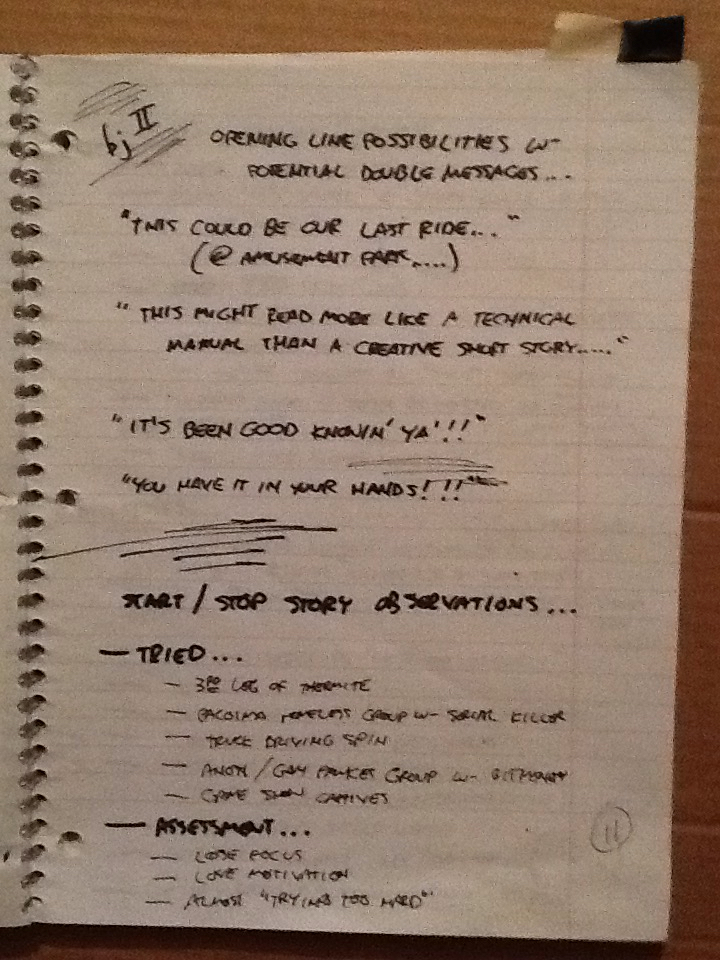 bj II
OPENING LINE POSSIBILITIES W-
POTENTIAL DOUBLE MESSAGES...
"THIS COULD BE OUR LAST RIDE..."
(@ AMUSEMENT PARK.....)
"THIS MIGHT READ MORE LIKE A TECHNICAL
MANUAL THAN A CREATIVE SHORT STORY....."
"IT'S BEEN GOOD KNOWIN' YA'!!"
"YOU HAVE IT IN YOUR HANDS!!!"
START / STOP STORY OBSERVATIONS...
— TRIED...
— 3RD LEG OF THERMITE
— PACOIMA HOMELESS GROUP W- SERIAL KILLER
— TRUCK DRIVING SPIN
— ANON / GAY GROUP W-
— GAME SHOW CAPTIVES
— ASSESSMENT...
— LOSE FOCUS
— LOSE MOTIVATION
— ALMOST "TRYING TOO HARD"
11